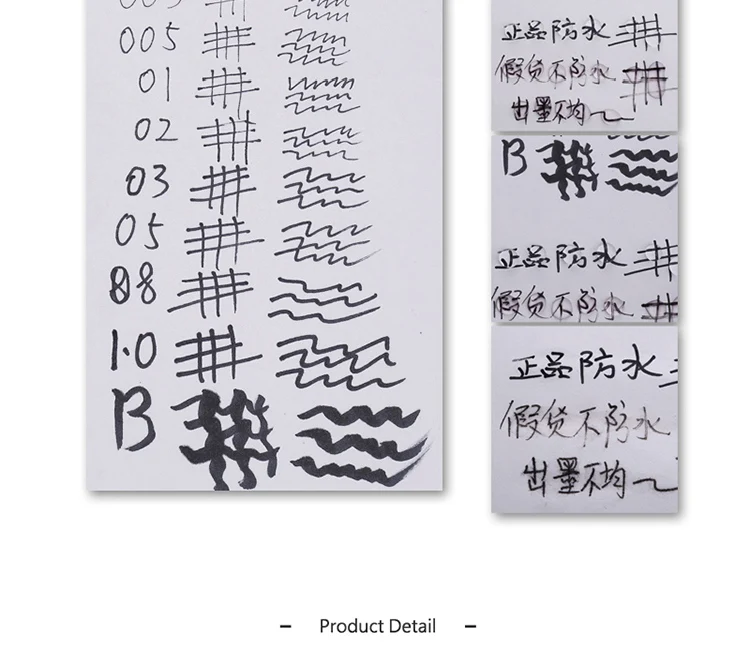 005
01
02
03
05
08
1.0
B
正品防水
假货不防水
出墨不均
B
正品防水
假货不防水
正品防水
假货不防水
出墨不均
Product Detail